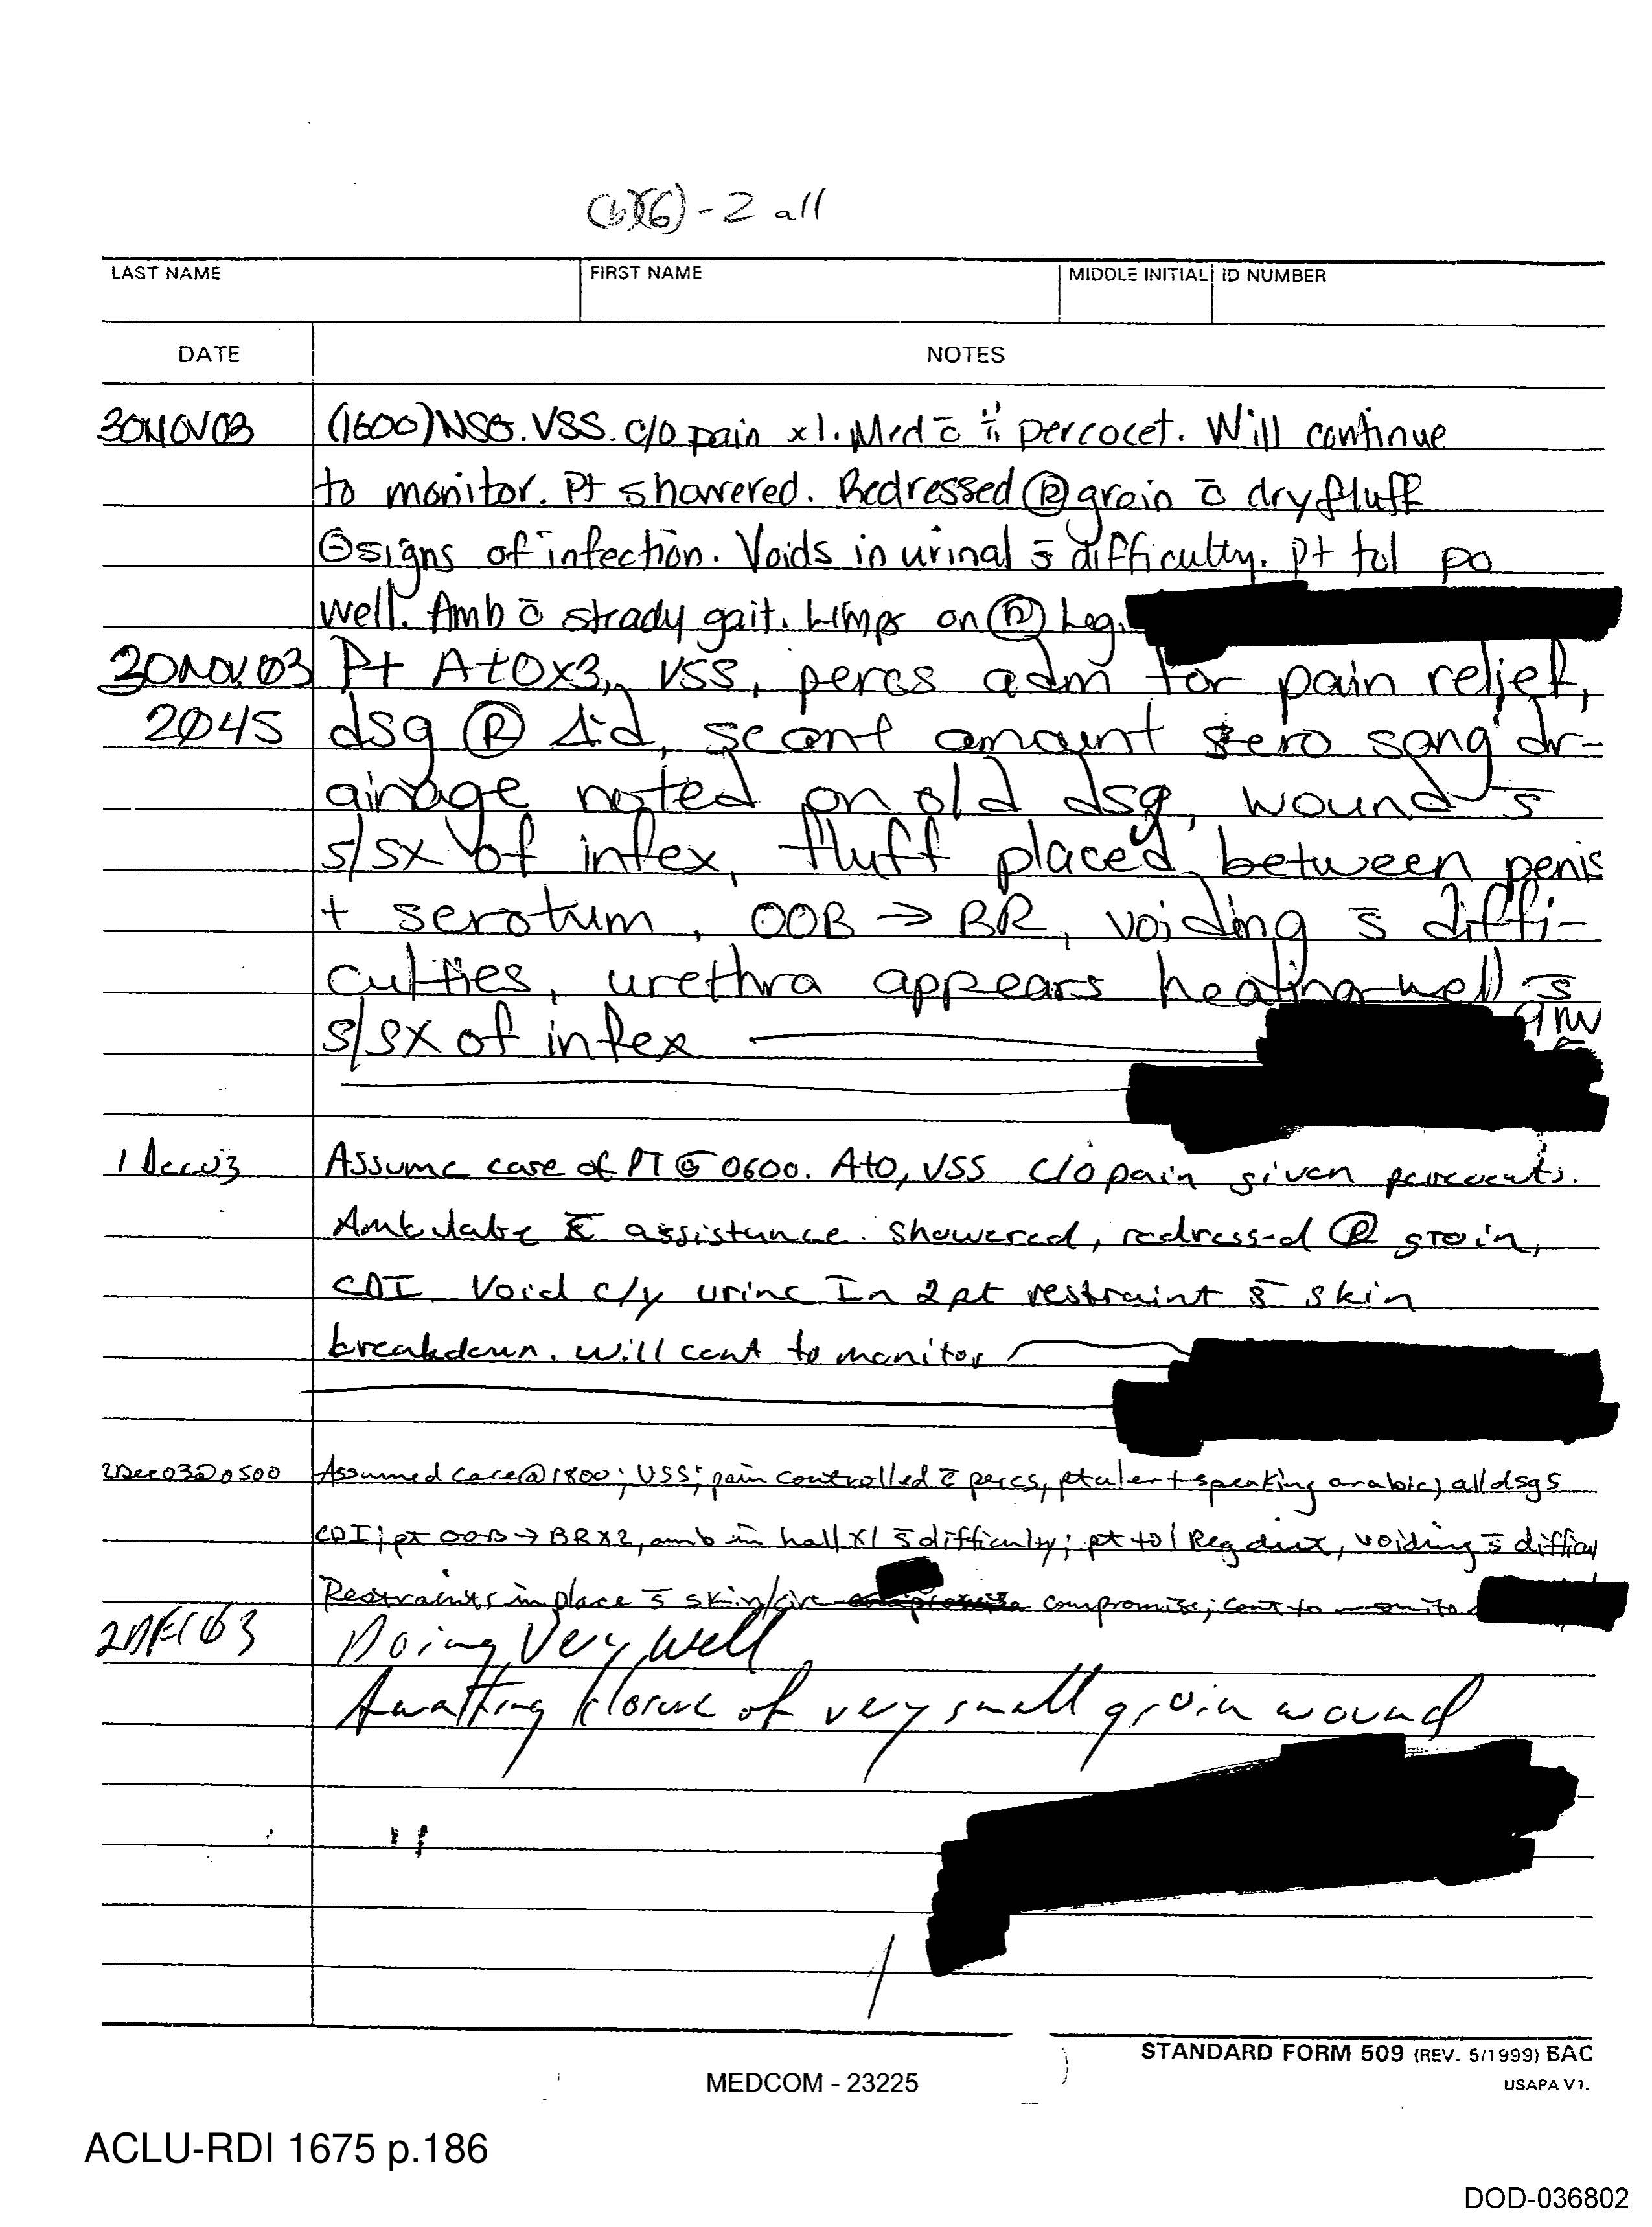 (b)(6)-2 all
LAST NAME FIRST NAME MIDDLE INITIAL ID NUMBER
DATE NOTES
30NOV03 (1600) NSG. VSS. c/o pain x1. Med c̄ ii percocet. Will continue
to monitor. Pt showered. Redressed Ⓡ groin c̄ dry fluff
⊖ signs of infection. Voids in urinal s̄ difficulty. Pt tol po
well. Amb c̄ steady gait. Limps on Ⓡ Leg.
30NOV03 Pt A+Ox3, VSS, percs adm for pain relief,
2045 dsg Ⓡ Δ'd, scant amount sero sang dr-
ainage noted on old dsg, wound s̄
s/sx of infex, fluff placed between penis
+ scrotum, OOB → BR, voiding s̄ diffi-
culties, urethra appears healing well s̄
s/sx of infex
1 Dec 03 Assume care of PT @ 0600. A+O, VSS c/o pain given percocets.
Ambulate c̄ assistance. Showered, redressed Ⓡ groin,
CDI Void c/y urine In 2pt restraint s̄ skin
breakdown. will cont to monitor
2Dec03@0500 Assumed care@1800; VSS; pain controlled c̄ percs, pt alert+speaking arabic; all dsgs
CDI; pt OOB → BRX2, amb in hall x1 s̄ difficulty; pt tol Reg diet, voiding s̄ difficul
Restraints in place s̄ skin/circ compromise; cont to monito
2DEC03 Doing Very well
Awaiting closure of very small groin wound
STANDARD FORM 509 (REV. 5/1999) BAC
USAPA V1.
MEDCOM - 23225
ACLU-RDI 1675 p.186
DOD-036802